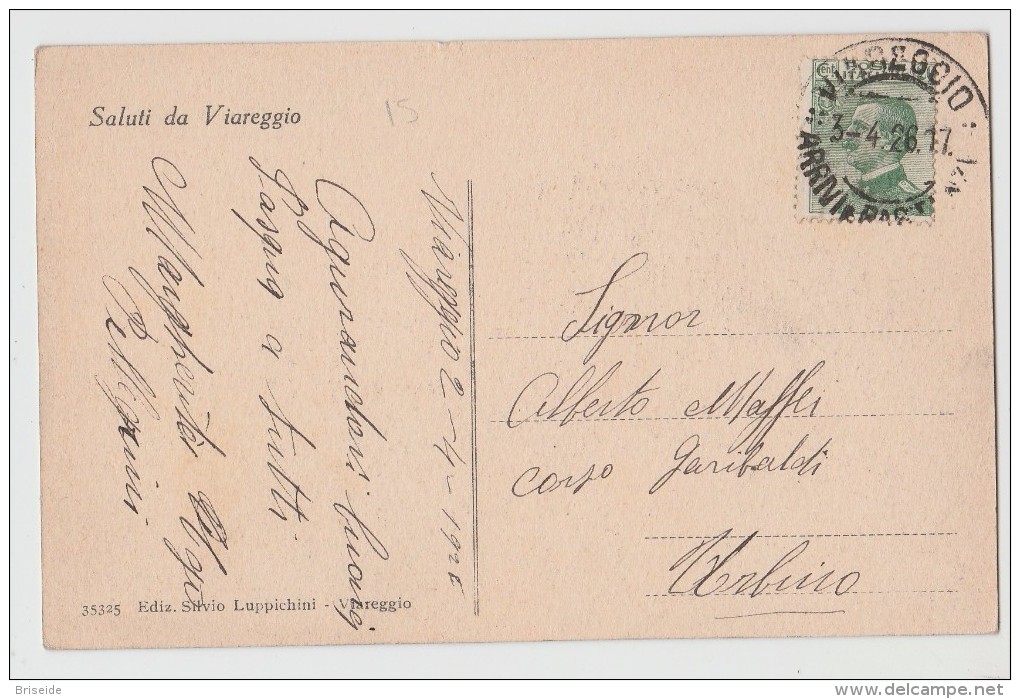 Saluti da Viareggio
15
Viareggio 2-4-1926
Augurandovi buona
Pasqua a tutti
Margherita Ugo
Signor
Alberto Maffei
corso Garibaldi
Urbino
VIAREGGIO
3-4.26.17
ARRIVI E PAR
35325 Ediz. Silvio Luppichini - Viareggio
Briseide
http://www.delcampe.net